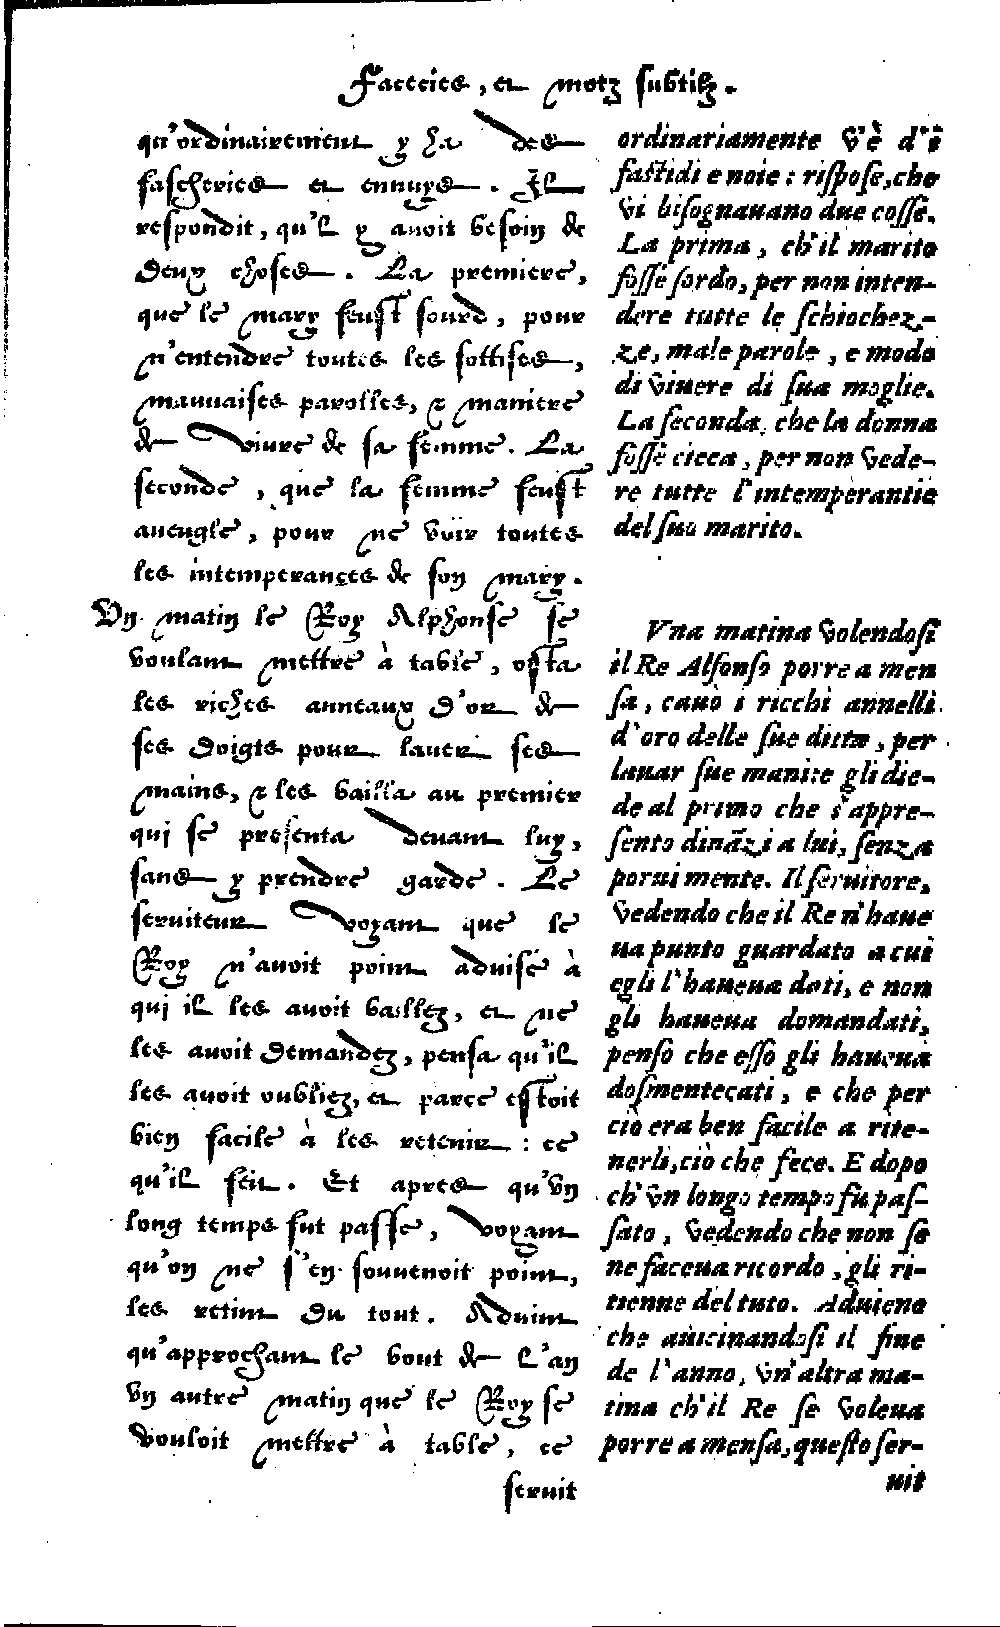 Facecies, et motz subtilz.
qu'ordinairement y ha des
fascheries et ennuys. Il
respondit, qu'il y avoit besoin de
deux choses. La premiere,
que le mary feust sourd, pour
n'entendre toutes les sottises,
mauvaises parolles, & maniere
de vivre de sa femme. La
seconde, que la femme feust
aveugle, pour ne voir toutes
les intemperances de son mary.
Un matin le Roy Alphonse se
voulant mettre à table, osta
les riches anneaux d'or de
ses doigts pour laver ses
mains, & les bailla au premier
qui se presenta devant luy,
sans y prendre garde. Le
serviteur voyant que le
Roy n'avoit point advisé à
qui il les avoit baillez, et ne
les avoit demandez, pensa qu'il
les avoit oubliez, et parce estoit
bien facile à les retenir : ce
qu'il feit. Et apres qu'un
long temps fut passé, voyant
qu'on ne s'en souvenoit point,
les retint du tout. Advint
qu'approchant le bout de l'an
un autre matin que le Roy se
vouloit mettre à table, ce
servit
ordinariamente v'è d'i
fastidi e noie: rispose, che
vi bisognauano due cosse.
La prima, ch'il marito
fosse sordo, per non inten-
dere tutte le schiochez-
ze, male parole, e modo
di viuere di sua moglie.
La seconda, che la donna
fosse cieca, per non vede-
re tutte l'intemperantie
del suo marito.
Vna matina volendosi
il Re Alfonso porre a men
sa, cauò i ricchi annelli
d'oro delle sue ditta, per
lauar sue mani: e gli die-
de al primo che s'appre-
sento dinãzi a lui, senza
porui mente. Il seruitore,
vedendo che il Re n'haue
ua punto guardato a cui
egli l'haueua dati, e non
gli haueua domandati,
penso che esso gli haueua
dosmentecati, e che per
ciò era ben facile a rite-
nerli, ciò che fece. E dopo
ch'vn longo tempo fu pas-
sato, vedendo che non se
ne faceua ricordo, gli ri-
tienne del tuto. Aduiene
che auicinandosi il fine
de l'anno, vn'altra ma-
tina ch'il Re se voleua
porre a mensa, questo ser-
uit